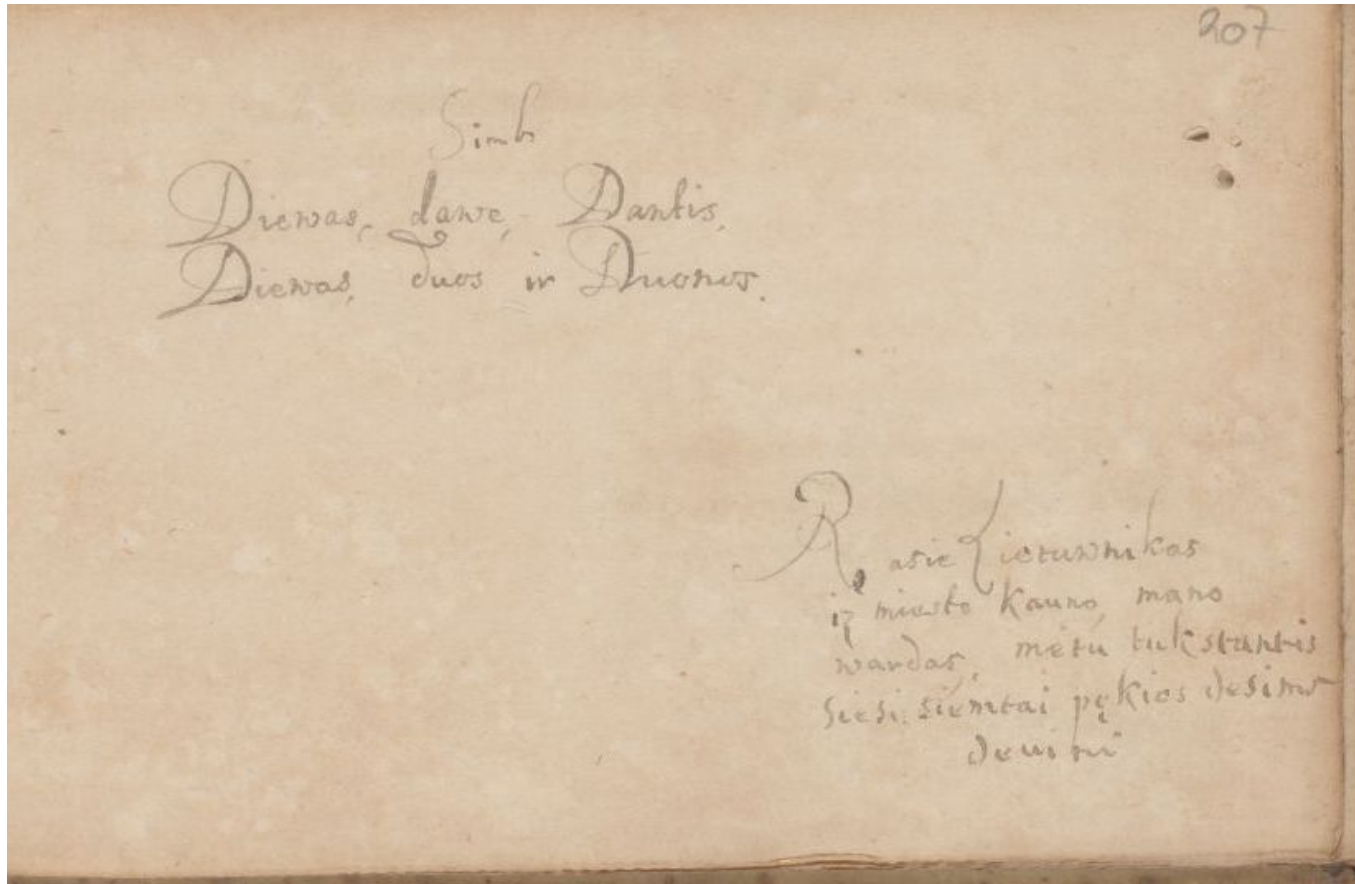 207
Simb
Diewas, dawe, Dantis,
Diewas, duos ir Duonos.
Rasie Lietuwnikas
iz miesto Kauno, mano
wardas, metu tukstantis
Siesi siemtai pękios desims
deuini